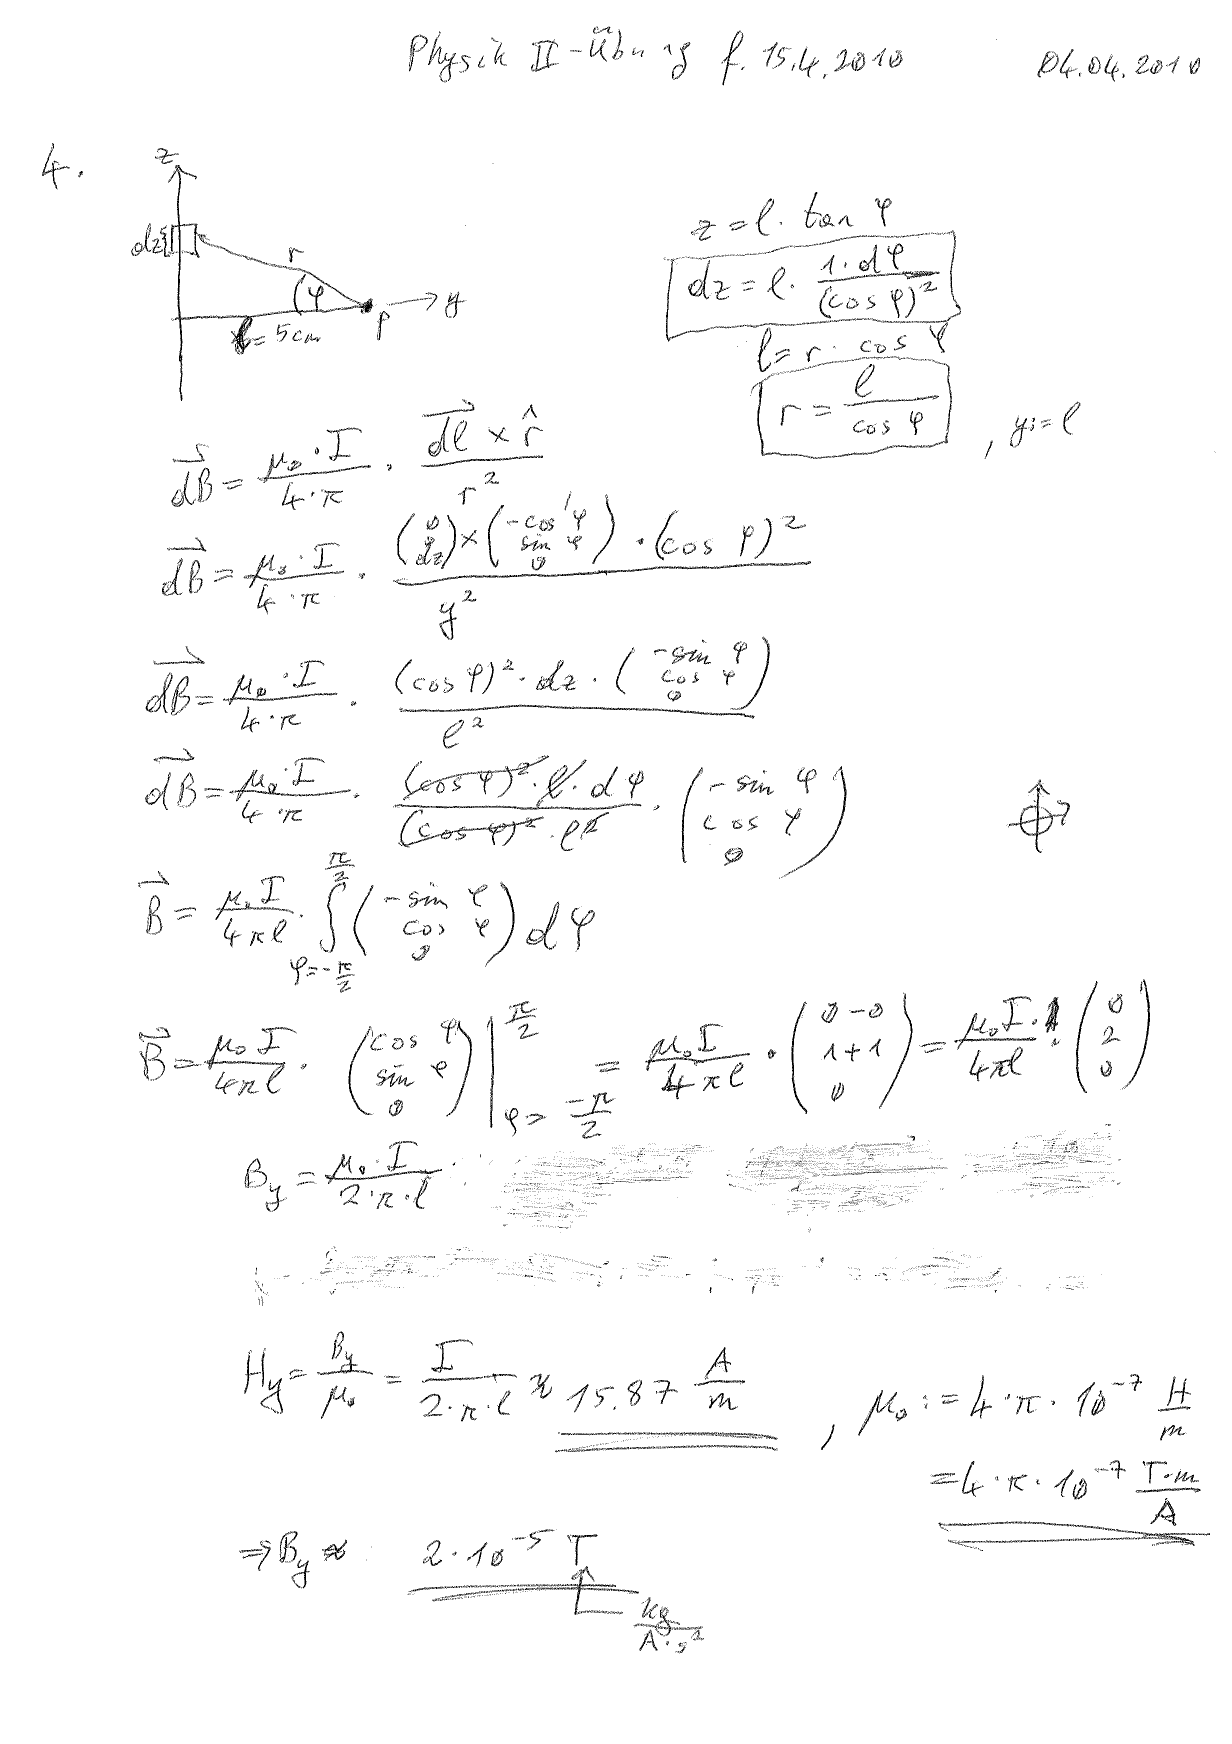 Physik II-Übung f. 15.4.2010 04.04.2010
4.
z
dz
r
φ
l = 5cm
P
y
z = l · tan φ
dz = l · \frac{1 · dφ}{(cos φ)^2}
l = r · cos φ
r = \frac{l}{cos φ} , y := l
\vec{dB} = \frac{μ_0 · I}{4 · π} · \frac{\vec{dl} × \hat{r}}{r^2}
\vec{dB} = \frac{μ_0 · I}{4 · π} · \frac{(0 0 dz) × (-cos φ sin φ 0) · (cos φ)^2}{y^2}
\vec{dB} = \frac{μ_0 · I}{4 · π} · \frac{(cos φ)^2 · dz · (-sin φ cos φ 0)}{l^2}
\vec{dB} = \frac{μ_0 · I}{4 · π} · \frac{(cos φ)^2 · l · dφ}{(cos φ)^2 · l^2} · (-sin φ cos φ 0)
\vec{B} = \frac{μ_0 I}{4πl} · ∫_{φ=-\frac{π}{2}}^{\frac{π}{2}} (-sin φ cos φ 0) dφ
\vec{B} = \frac{μ_0 I}{4πl} · (cos φ sin φ 0) |_{φ=\frac{-π}{2}}^{\frac{π}{2}} = \frac{μ_0 I}{4πl} · (0-0 1+1 0) = \frac{μ_0 I}{4πl} · (0 2 0)
B_y = \frac{μ_0 · I}{2 · π · l}
H_y = \frac{B_y}{μ_0} = \frac{I}{2 · π · l} ≈ 15.87 \frac{A}{m} , μ_0 := 4 · π · 10^{-7} \frac{H}{m}
= 4 · π · 10^{-7} \frac{T·m}{A}
⇒ B_y ≈ 2 · 10^{-5} T
\frac{kg}{A · s^2}